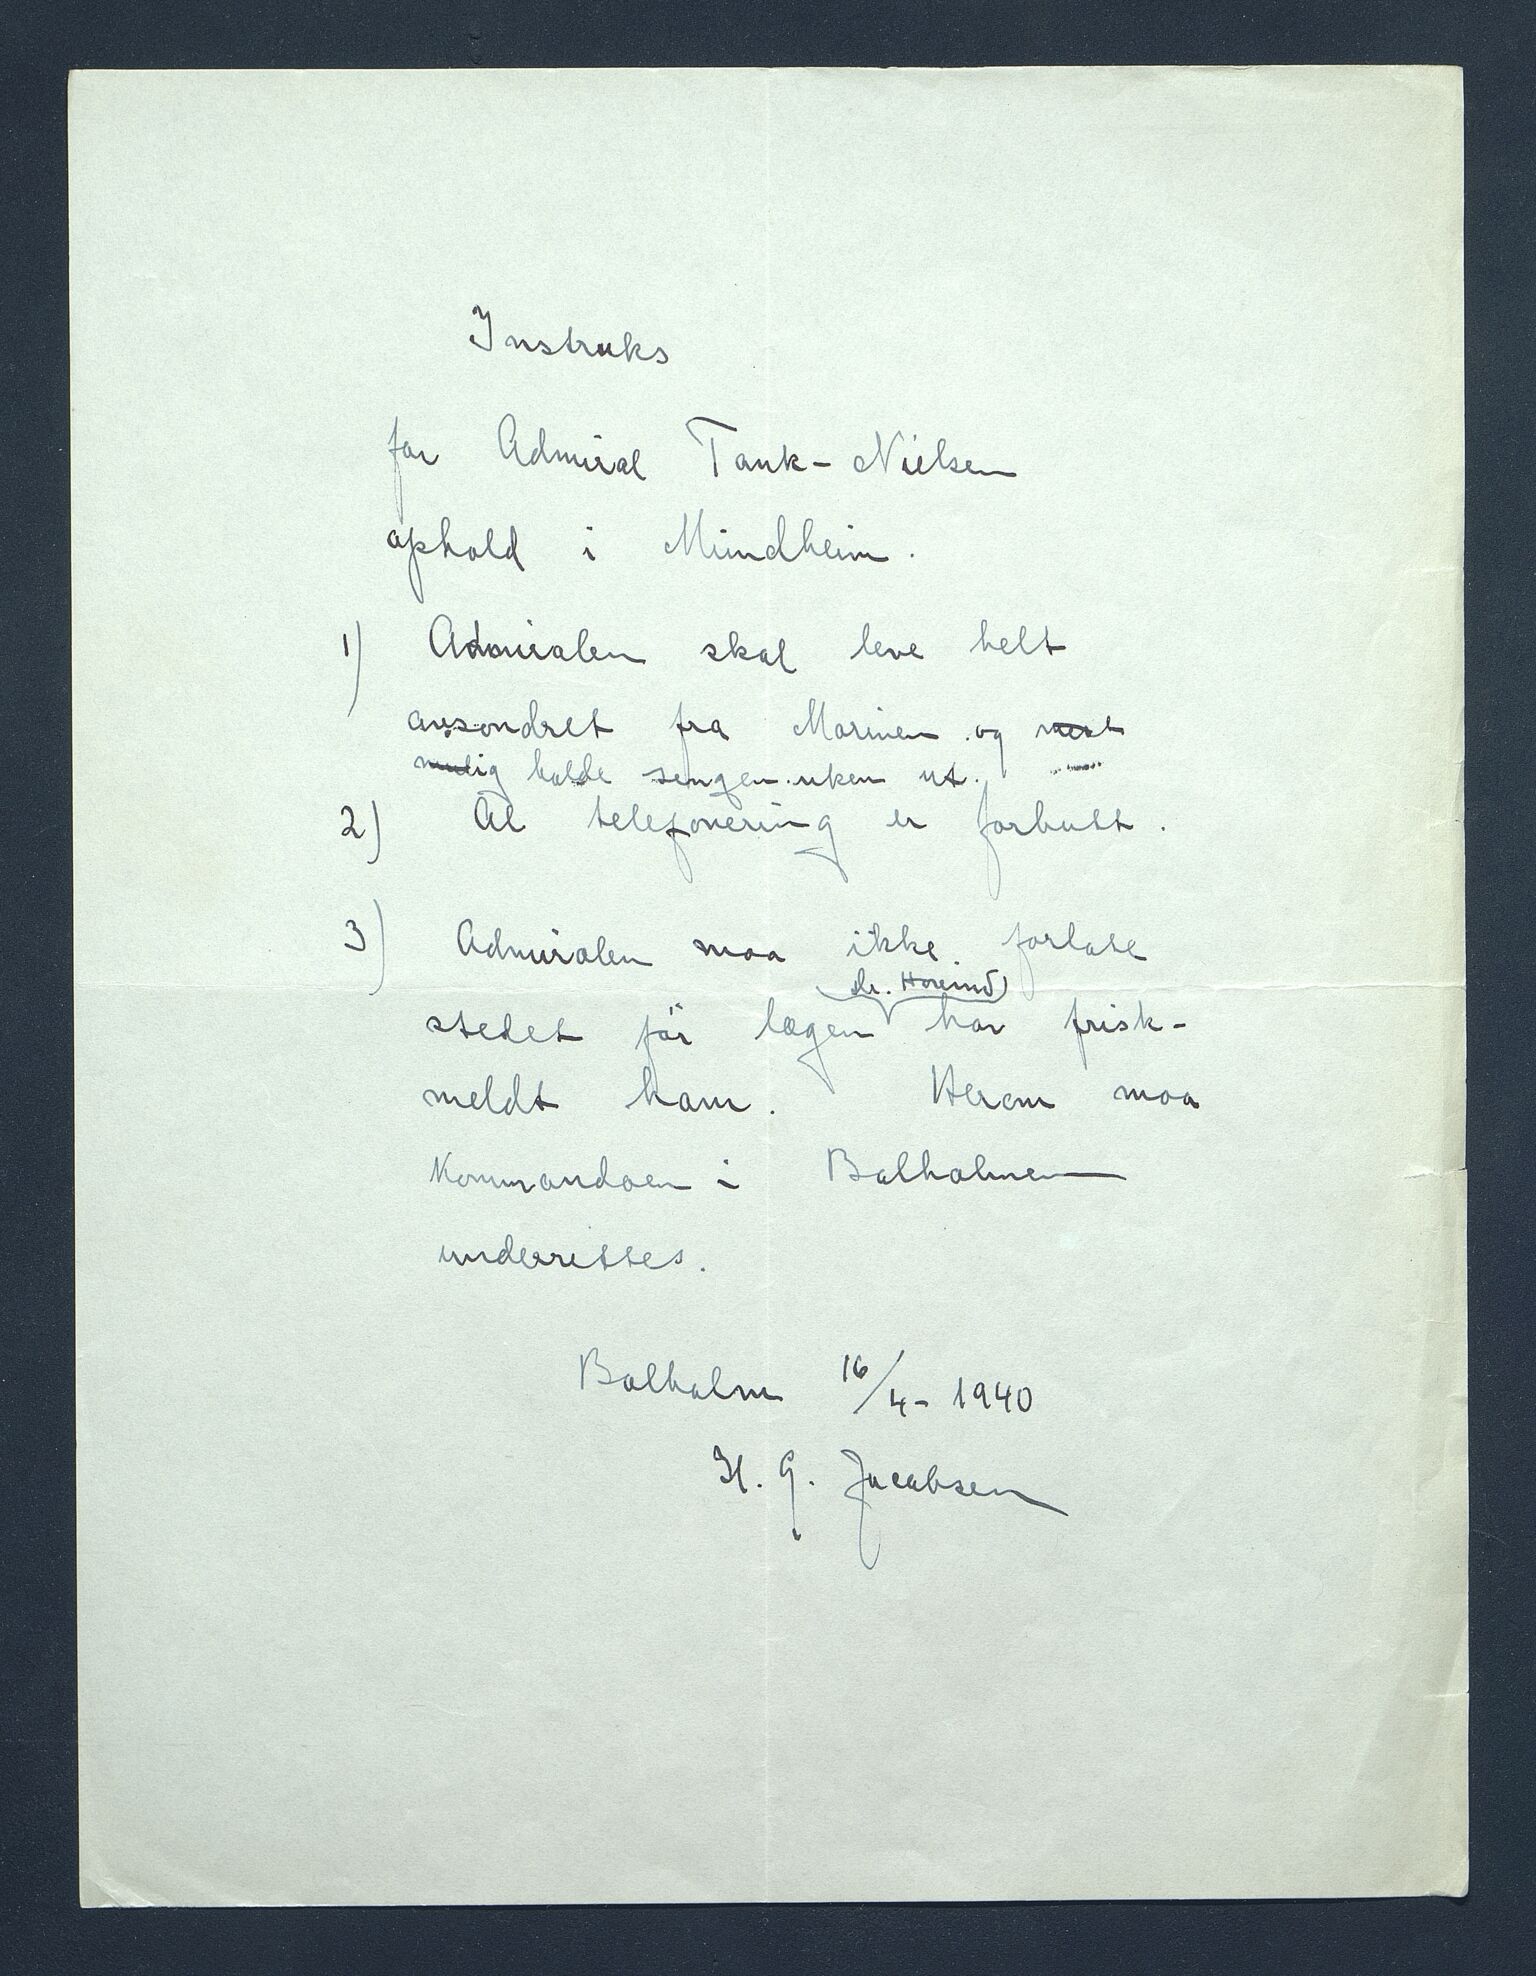 Instruks
for Admiral Tank-Nielsen
ophold i Mundheim.
1) Admiralen skal leve helt
avsondret fra Marinen og mest
mulig holde sengen uken ut.
2) Al telefonering er forbutt.
3) Admiralen maa ikke forlate
stedetför lægen (dr. ) har frisk-
meldt ham. Herom maa
Kommandoen i Balholmen
underrettes.
Balholm 16/4- 1940
H. G. Jacobsen